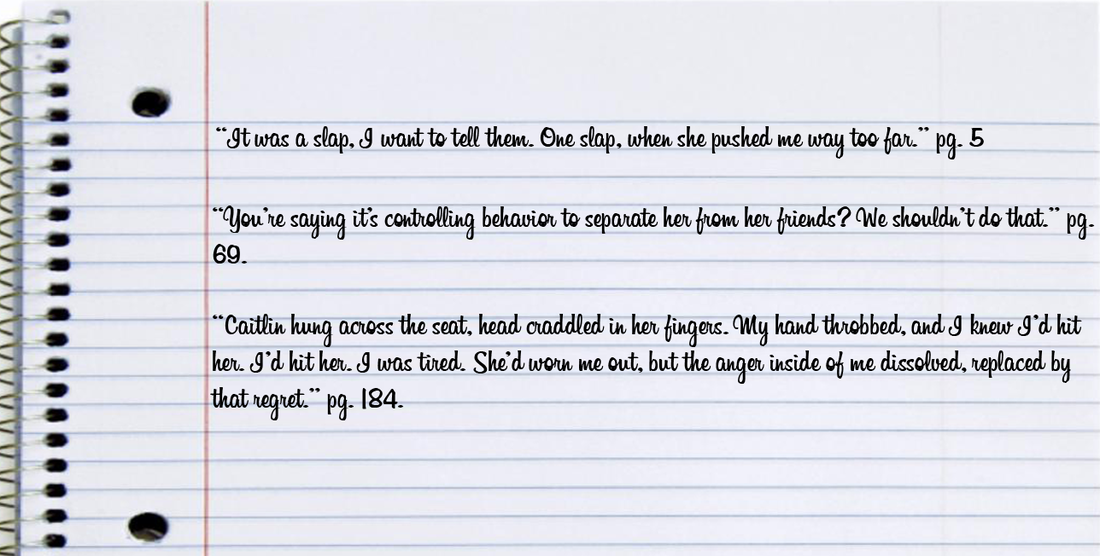 “It was a slap, I want to tell them. One slap, when she pushed me way too far.” pg. 5
“You’re saying it’s controlling behavior to separate her from her friends? We shouldn’t do that.” pg.
69.
“Caitlin hung across the seat, head craddled in her fingers. My hand throbbed, and I knew I’d hit
her. I’d hit her. I was tired. She’d worn me out, but the anger inside of me dissolved, replaced by
that regret.” pg. 184.